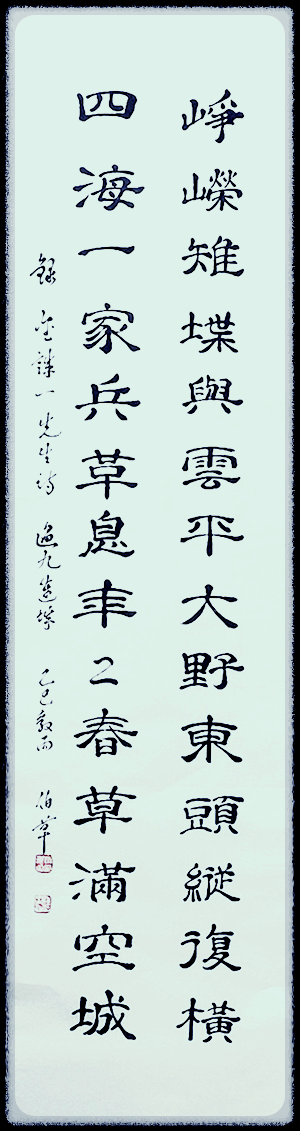 崢嶸雉堞與雲平大野東頭縱復橫
四海一家兵革息年々春草滿空城
錄 一先生詩 過九連城 乙巳穀雨 伯草